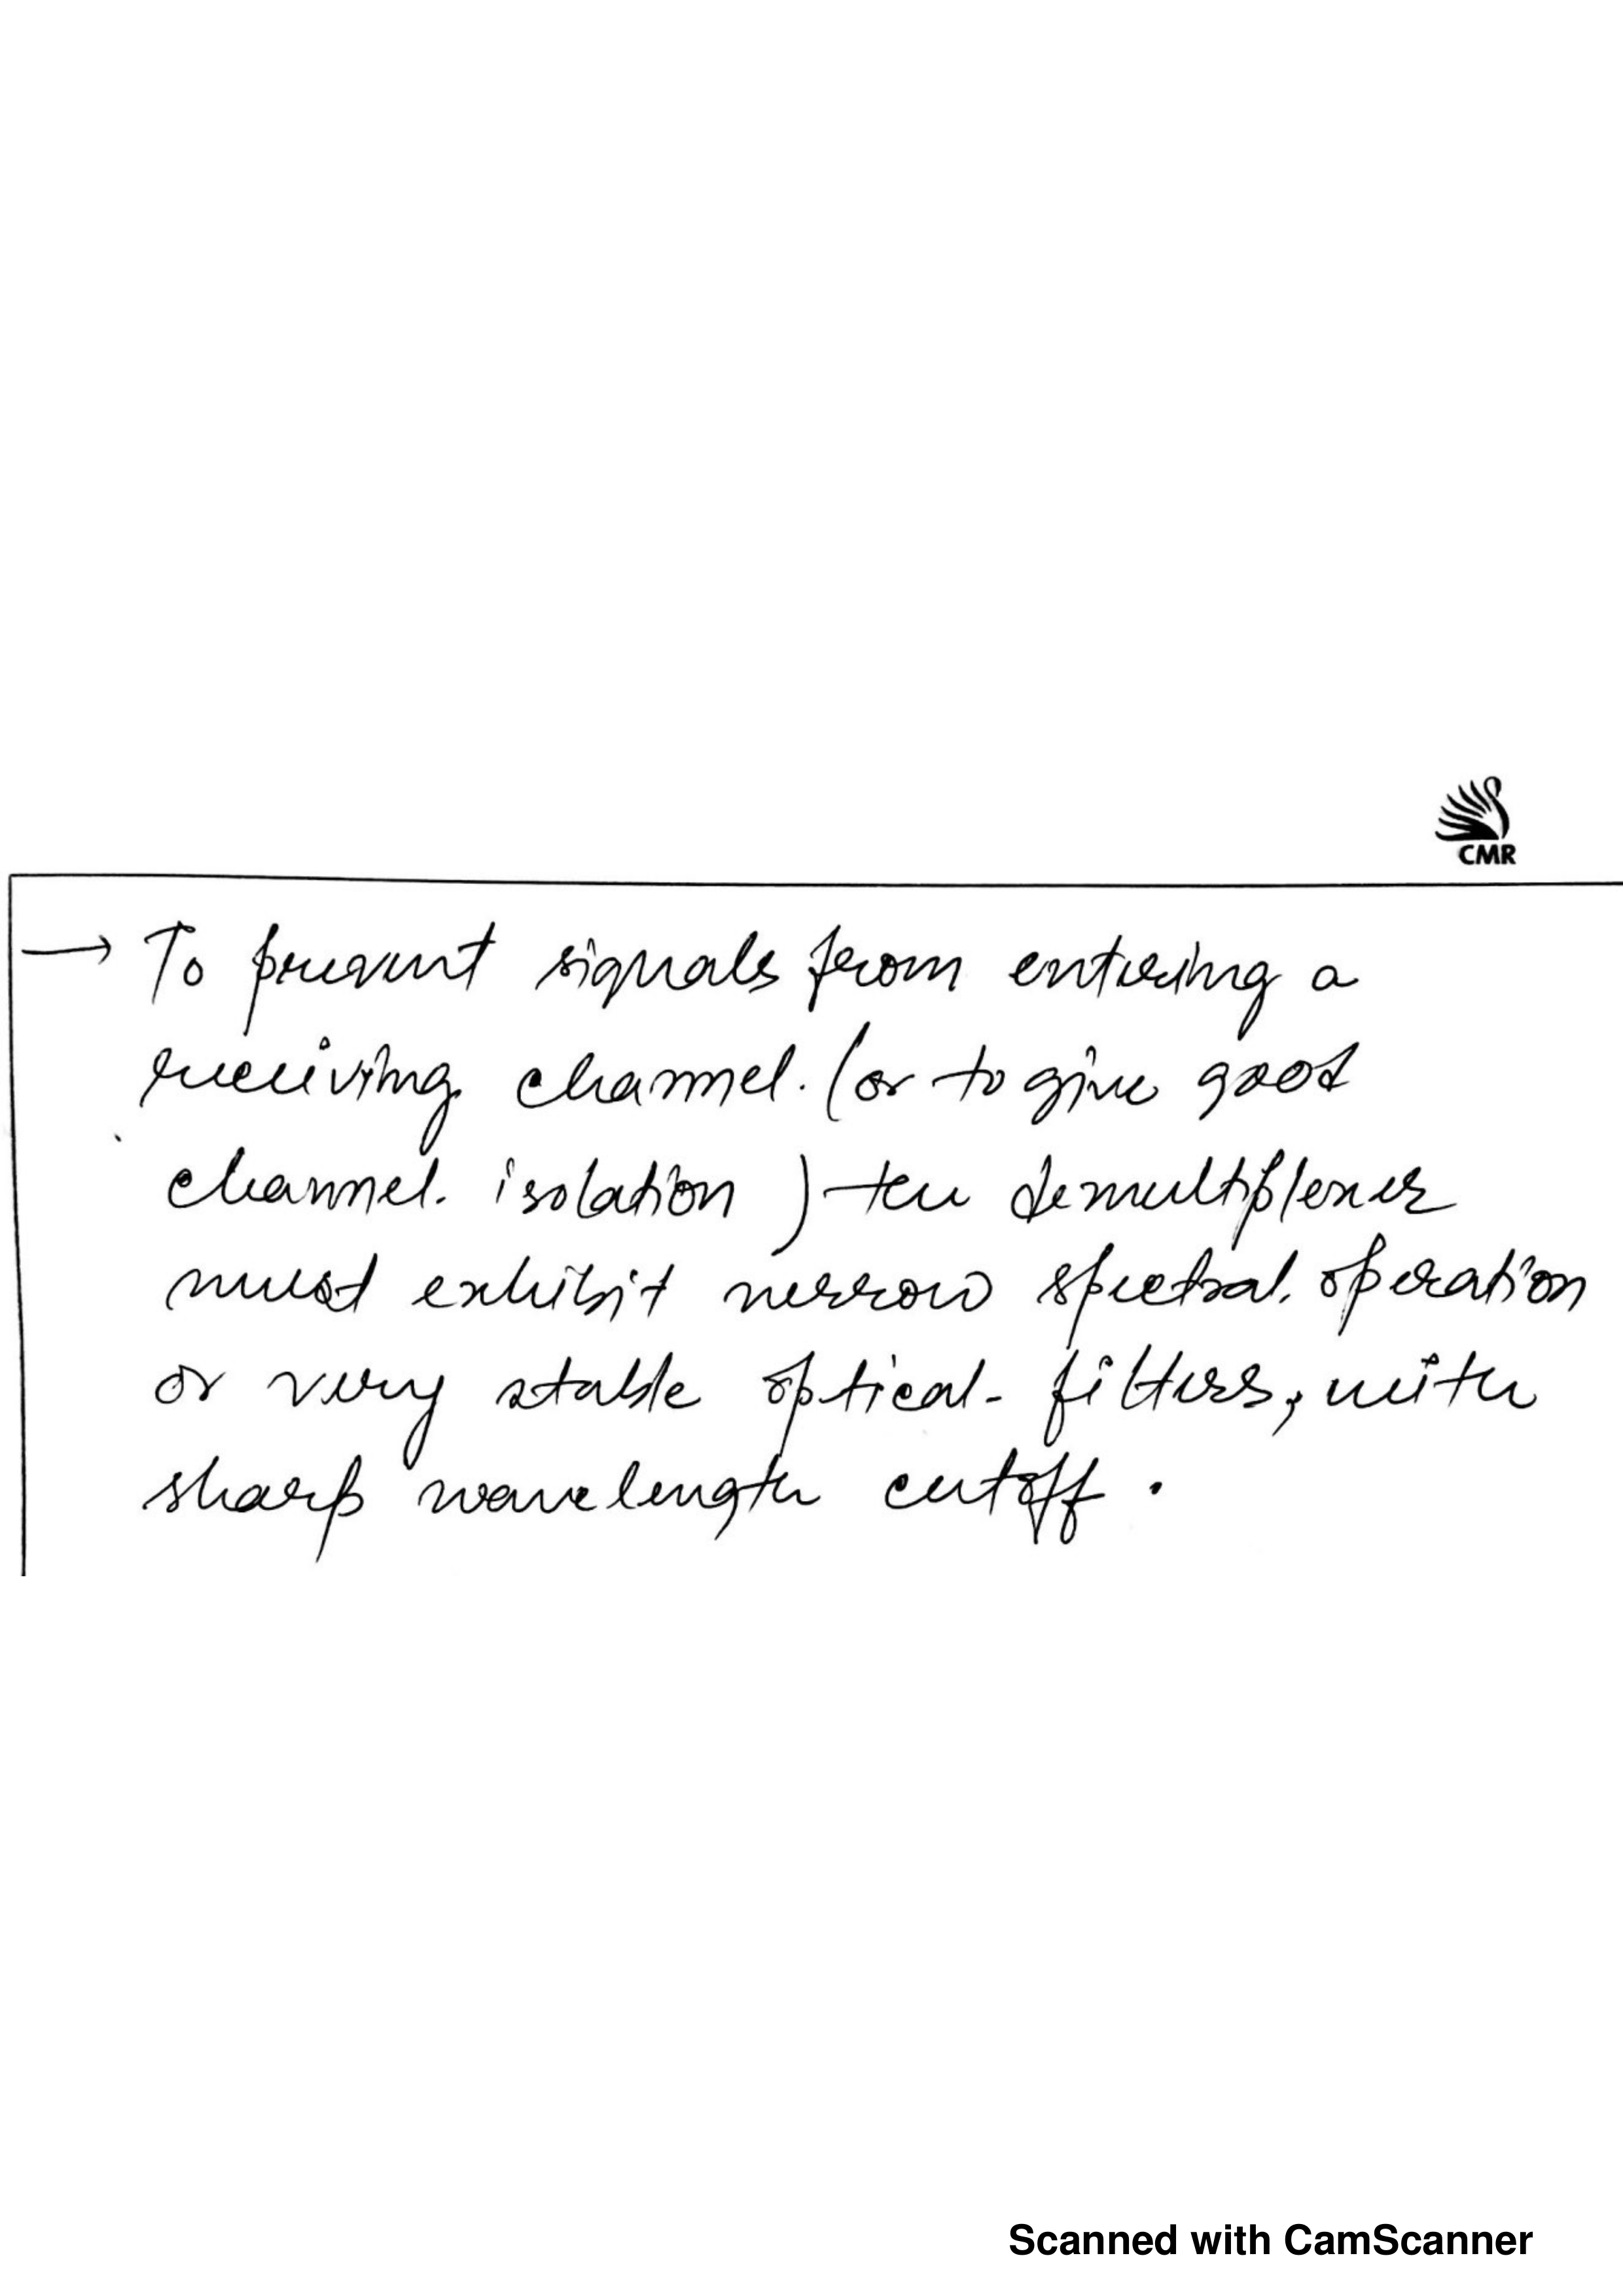 CMR
→ To prevent signals from entering a
receiving channel. (or to give good
channel. isolation) the demultiplexer
must exhibit nerrow spectral. operation
or very stable optical- filters, with
sharp wavelength cutoff.
Scanned with CamScanner